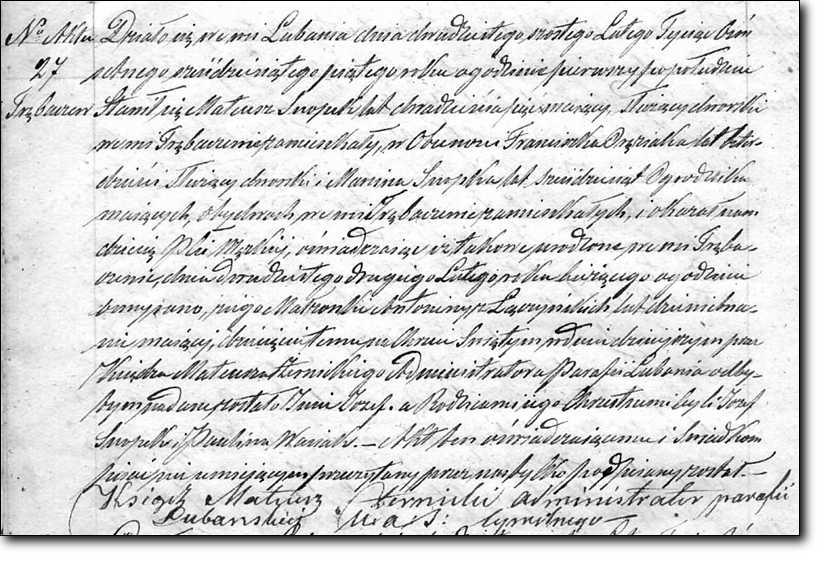 No Aktu Działo się we wsi Lubania dnia dwudziestego szóstego Lutego Tysiąc Ośm
27 setnego sześdziesiątego piątego roku o godzinie pierwszy po południu
Trębaczew Stawił się Mateusz Snopek lat dwadzieścia pięć mający, Służący dworski
we wsi Trębaczewie zamieszkały, w Obecności Franciszka lat czter-
dzieści Służący dworski i Marcina Snopka lat sześdziesiąt Ogrodnika
mających, obydwoch we wsi Trębaczewie zamieszkałych, i okazał nam
dziecię Płci Męzkiej, oświadczając iż takowe urodzone we wsi Tręba-
czewie, dnia dwudziestego drugiego Lutego roku bieżącego o godzinie
ósmy rano, z jego Małżonki Antoniny z Łączyńskich, lat dziewietna-
ście mającej, dziecięciu temu na Chrzcie Świętym w dniu dzisiejszym przez
Księdza Mateusza Administratora Parafii Lubania odby-
tym nadane zostało Imie Józef. a Rodzicami jego Chrzestnemi byli Józef
Snopek i Paulina — Akt ten oświadczającemu i Świadkom
pisać nie umiejącym przeczytany przez nas tylko podpisany został.—
Ksiądz Mateusz administrator parafii
Lubańskiej cywilnego